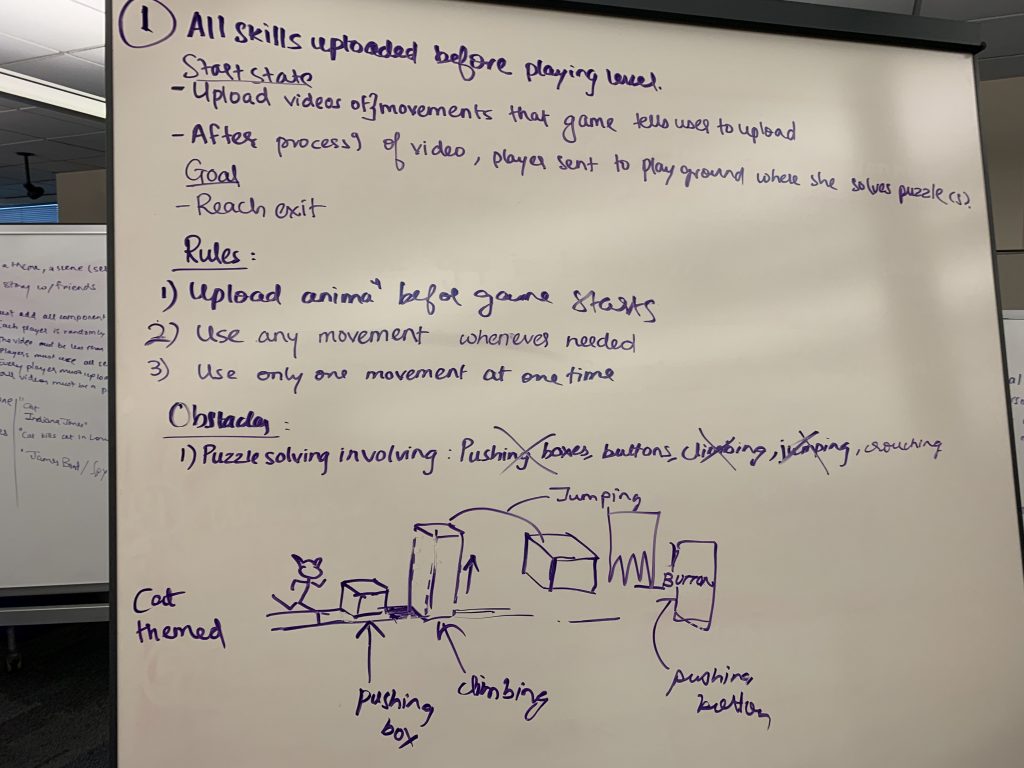 1 All skills uploaded before playing level.
Start state
- Upload videos of movements that game tells user to upload
- After process) of video, player sent to play ground where she solves puzzle(s).
Goal
- Reach exit
Rules:
1) Upload anima befoe game starts
2) Use any movement whenever needed
3) Use only one movement at one time
Obstacles:
1) Puzzle solving involving: Pushing boxes, buttons, climbing, jumping, crouching
Jumping
Button
Cat
themed
pushing
box
climbing
pushing
button
a theme, a scene
story w/ friends
add all component
Each player is randomly
must be less
players must use all
Every player must uplo
videos must be a
"Cat
Indiana Jones"
"Cat kills cat in
"James Bond / Spy